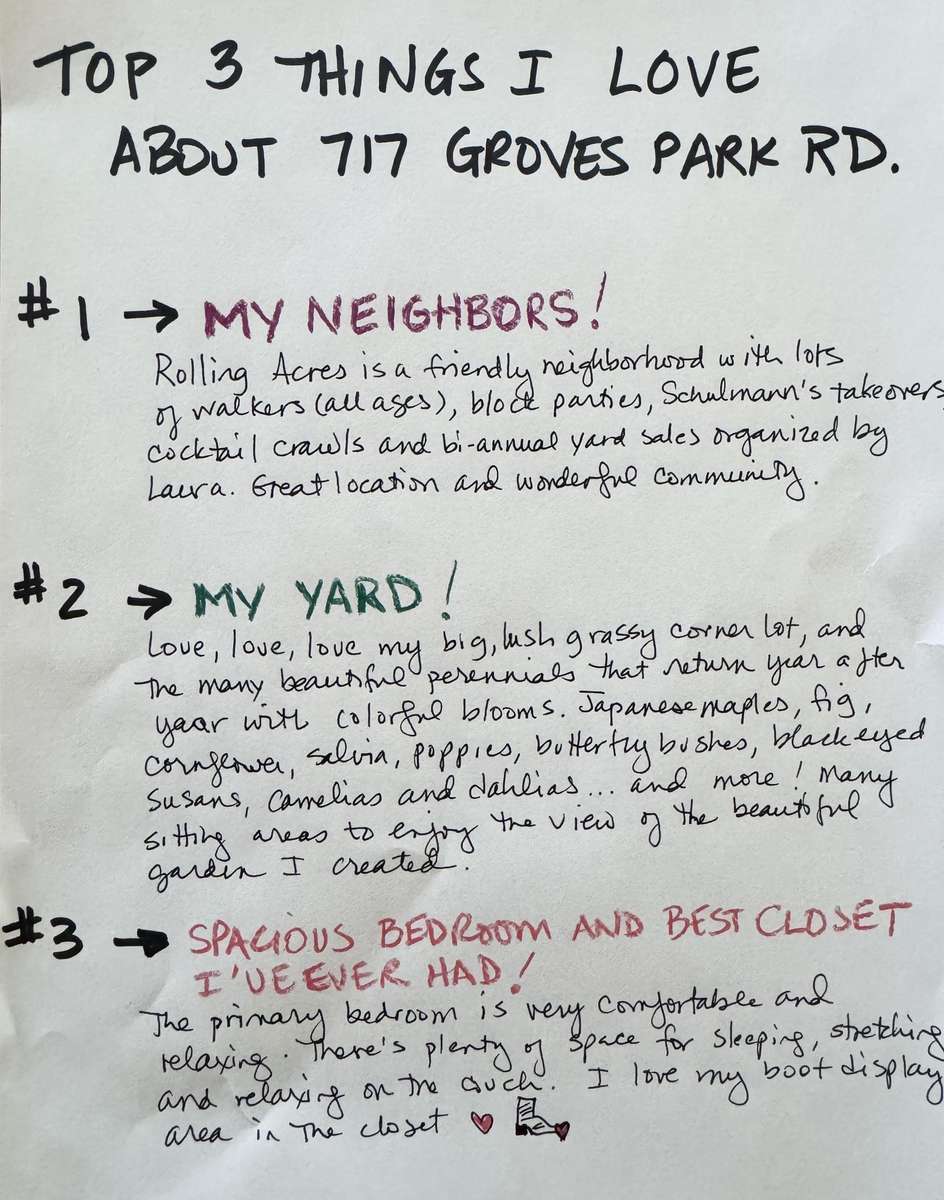 TOP 3 THINGS I LOVE
ABOUT 717 GROVES PARK RD.
#1 → MY NEIGHBORS!
Rolling Acres is a friendly neighborhood with lots
of walkers (all ages), block parties, Schulmann's takeovers,
cocktail crawls and bi-annual yard sales organized by
Laura. Great location and wonderful community.
#2 → MY YARD!
Love, love, love my big, lush grassy corner lot, and
the many beautiful perennials that return year after
year with colorful blooms. Japanese maples, fig,
cornflower, salvia, poppies, butterfly bushes, black eyed
Susans, Camelias and dahlias... and more! Many
sitting areas to enjoy the view of the beautiful
garden I created.
#3 → SPACIOUS BEDROOM AND BEST CLOSET
I'VE EVER HAD!
The primary bedroom is very comfortable and
relaxing. There's plenty of space for sleeping, stretching
and relaxing on the couch. I love my boot display
area in the closet